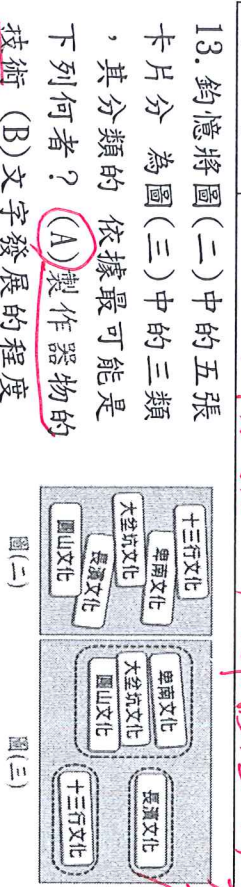 13.鈞憶將圖(二)中的五張
卡片分 為圖(三)中的三類
，其分類的 依據最可能是
下列何者？ (A)製作器物的
技術 (B)文字發展的程度
十三行文化
卑南文化
大坌坑文化
長濱文化
圓山文化
圖(二)
卑南文化
大坌坑文化
圓山文化
長濱文化
十三行文化
圖(三)